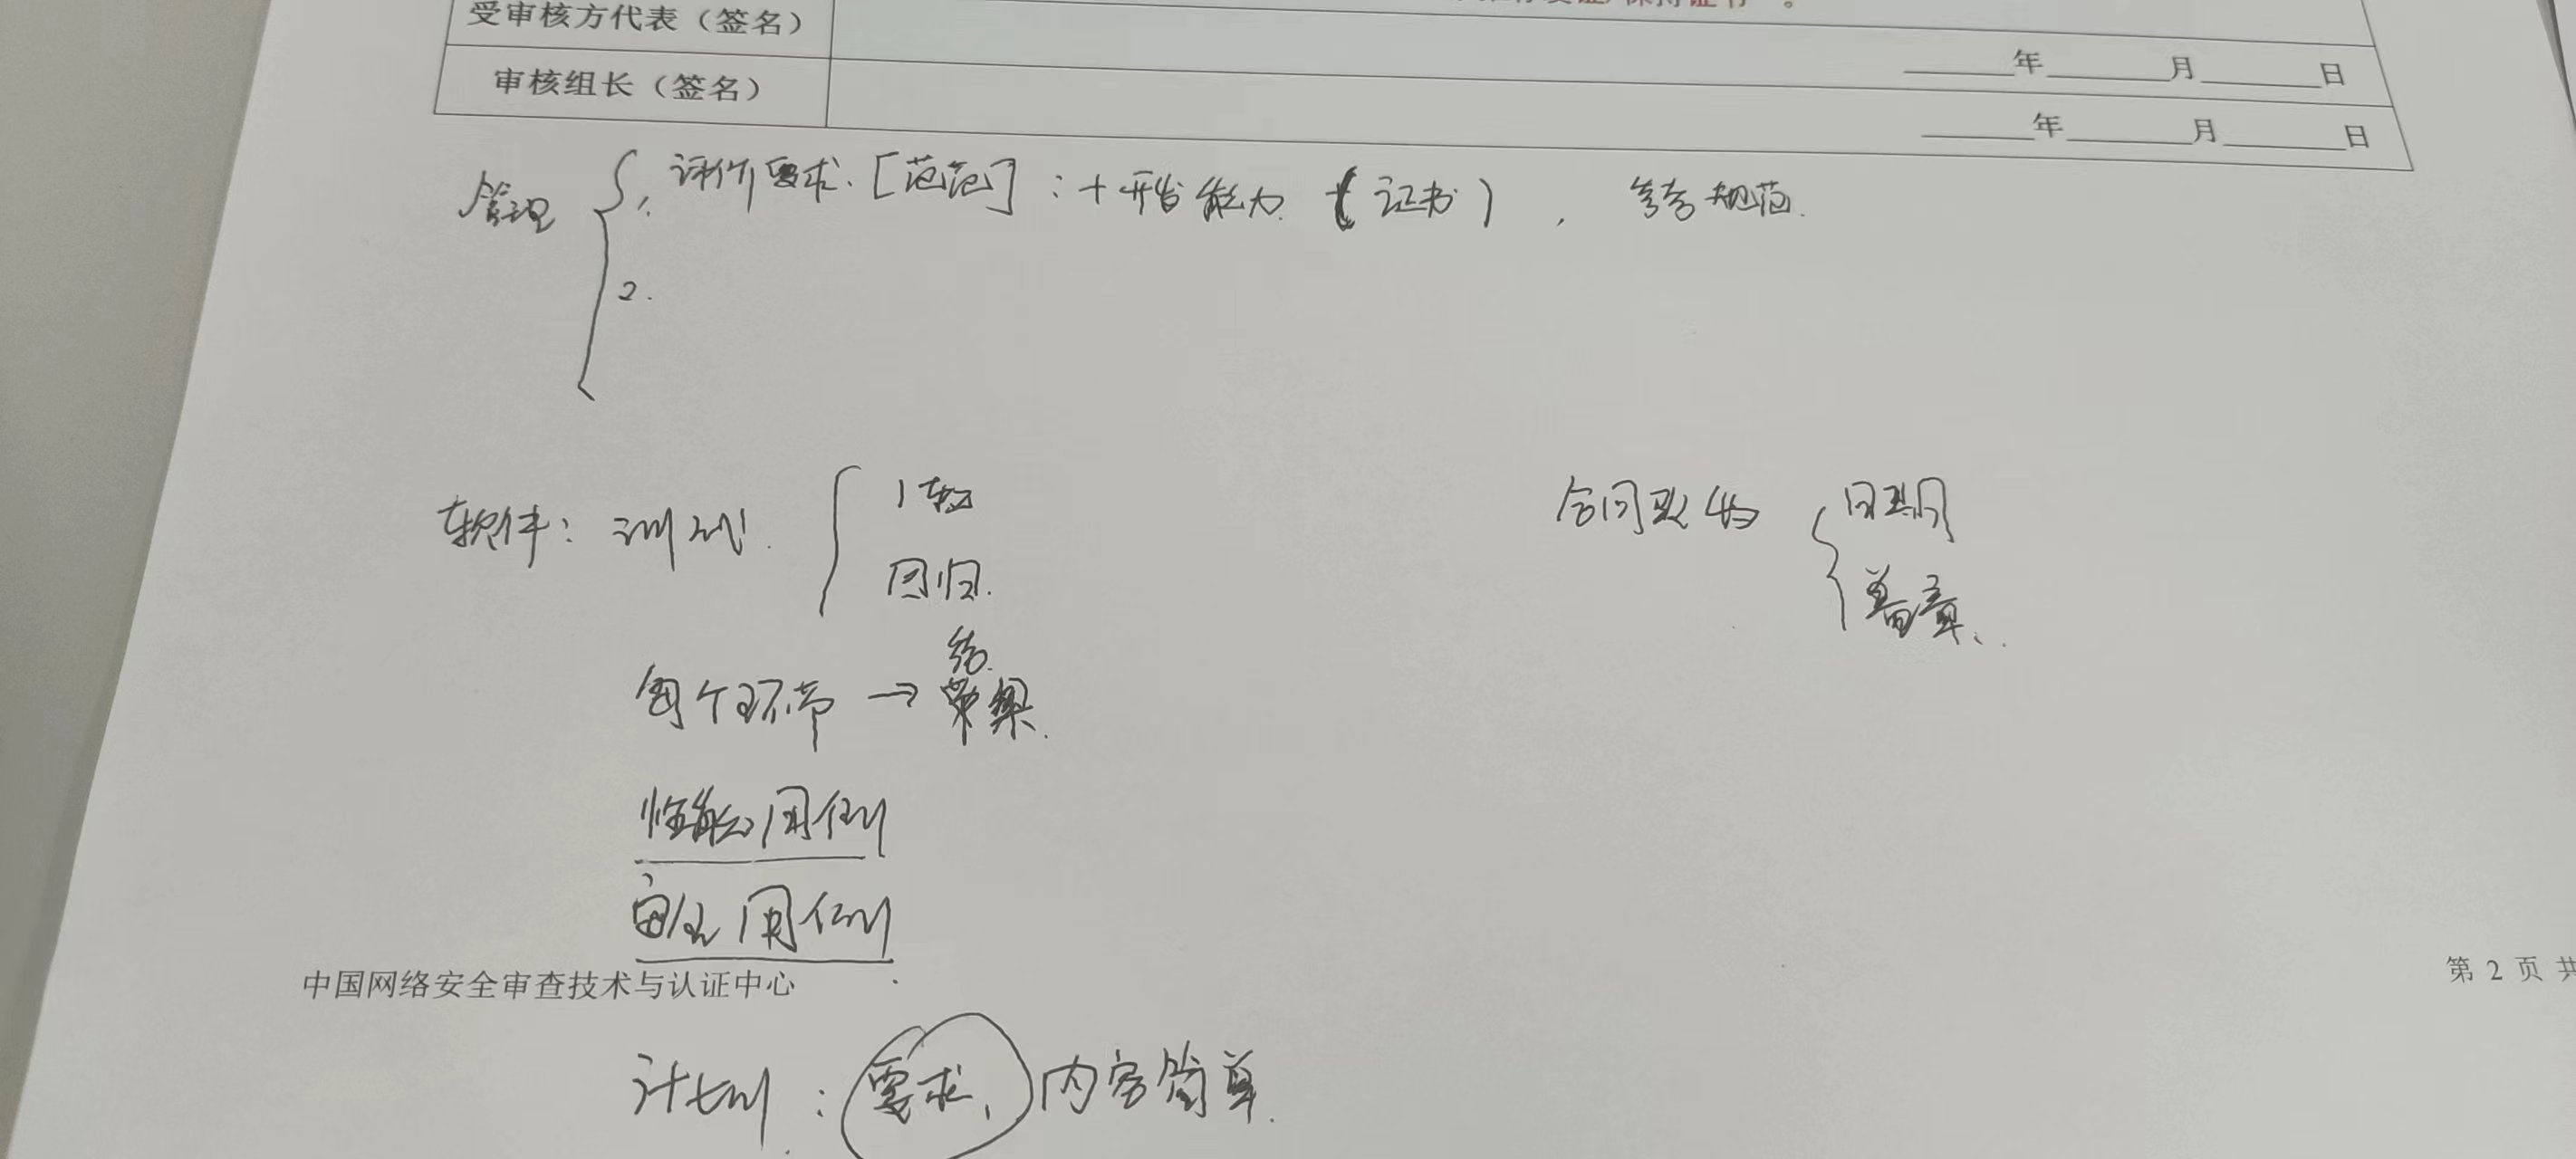 受审核方代表（签名）
年 月 日
审核组长（签名）
年 月 日
管理 1. 评价要求. [规范] : + 开发能力 （证书） , 参考规范.
2.
软件: 测试. 1轮
回归.
合同取得 日期
盖章.
每个环节 → 结果.
性能用例
安全用例
中国网络安全审查技术与认证中心
第 2 页 共
计划: 要求, 内容简单.